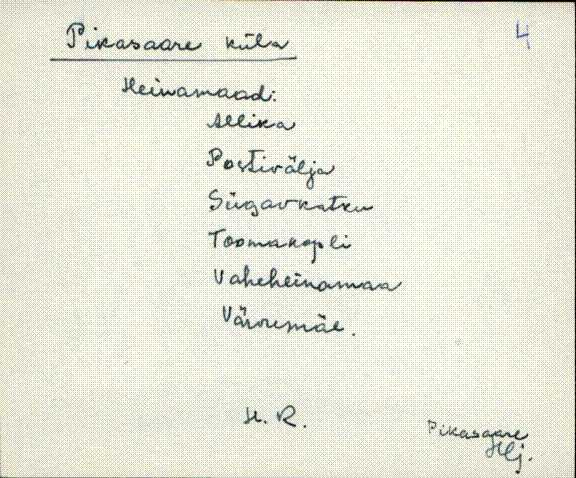 Pikasaare küla
4
Heinamaad:
Allika
Postivälja
Sügavkatku
Toomakopli
Vaheheinamaa
Väromäe.
H. R.
Pikasaare
Hlj.